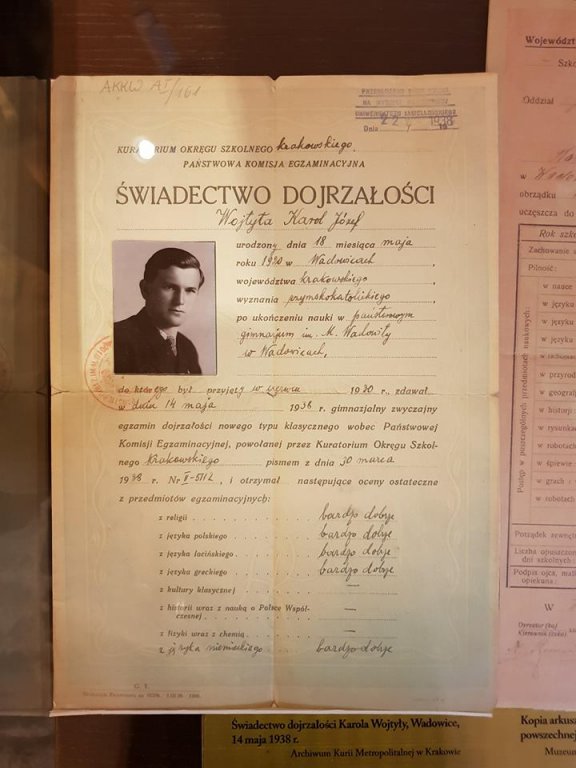 AKKW AT/161
NA WYDZIAŁ
UNIWERSYTETU JAGIELLOŃSKIEGO
Dnia 22 V 1938
KURATORIUM OKRĘGU SZKOLNEGO Krakowskiego.
PAŃSTWOWA KOMISJA EGZAMINACYJNA
ŚWIADECTWO DOJRZAŁOŚCI
Wojtyła Karol Józef
urodzony dnia 18 miesiąca maja
roku 1920 w Wadowicach,
województwa krakowskiego,
wyznania rzymskokatolickiego,
po ukończeniu nauki w państwowym
gimnazjum im. M. Wadowity
w Wadowicach,
do którego był przyjęty w czerwcu 1930 r., zdawał
w dniu 14 maja 1938 r. gimnazjalny zwyczajny
egzamin dojrzałości nowego typu klasycznego wobec Państwowej
Komisji Egzaminacyjnej, powołanej przez Kuratorium Okręgu Szkol-
nego Krakowskiego pismem z dnia 30 marca
1938 r. Nr II-5712, i otrzymał następujące oceny ostateczne
z przedmiotów egzaminacyjnych:
z religii bardzo dobrze
z języka polskiego bardzo dobrze
z języka łacińskiego bardzo dobrze
z języka greckiego bardzo dobrze
z kultury klasycznej —
z historii wraz z nauką o Polsce Współ-
czesnej —
z fizyki wraz z chemią —
z języka niemieckiego bardzo dobrze
G. T.
Świadectwo dojrzałości Karola Wojtyły, Wadowice,
14 maja 1938 r.
Archiwum Kurii Metropolitalnej w Krakowie
Województwo
Szko
Oddział
w Wado
obrządku
uczęszcza do
Rok szko
Zachowanie
Pilność:
w nauce
w języku
w języku
w języku
w rachunkach
w przyrod
w geografi
w historji
w rysunkach
w robotach
w śpiewie
w grach i
w robotach
Postęp w poszczególnych przedmiotach naukowych:
Porządek zewnętrz
Liczba opuszczon
dni szkolnych
Podpis ojca, matk
opiekuna:
W
Dyrektor (ka)
Kierownik (czka)
Kopia arkusz
powszechnej
Museum